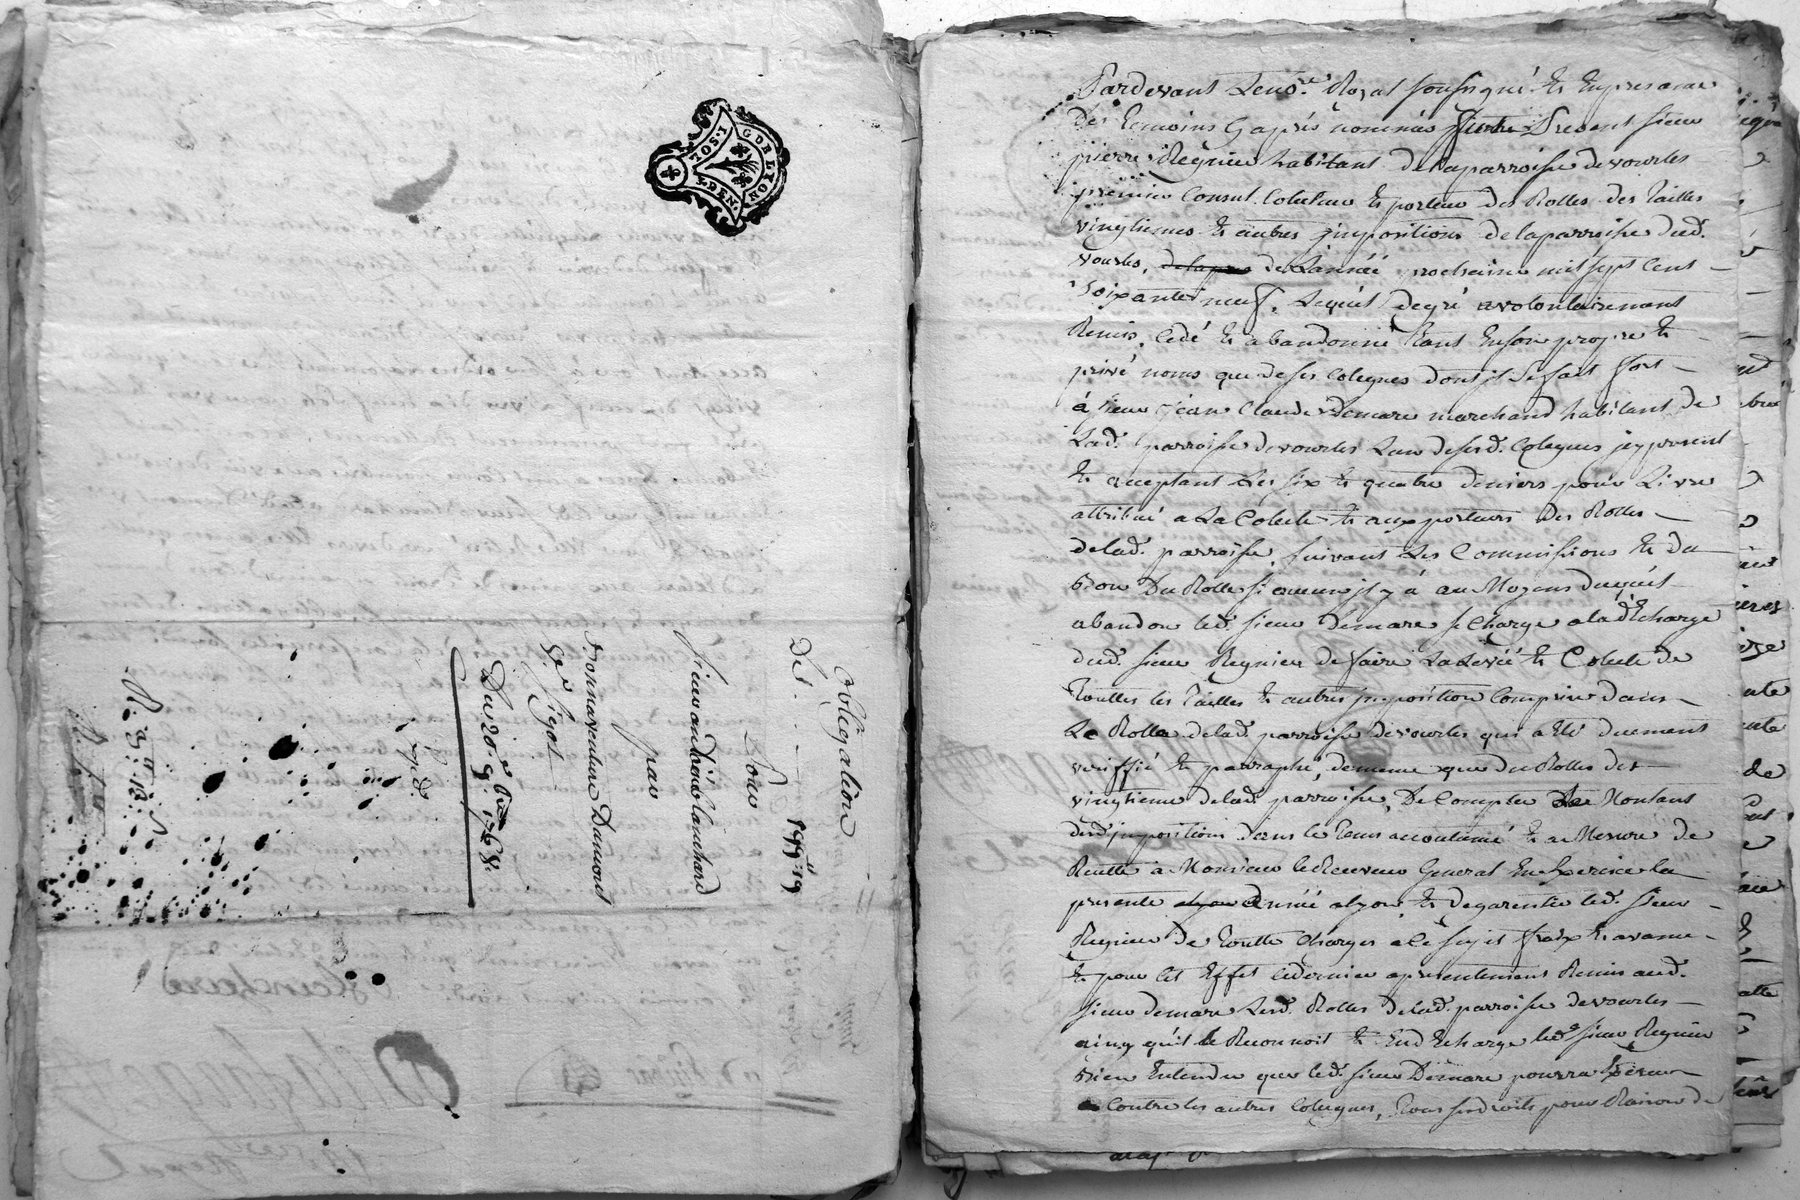 GDE LYON
2 SOLS
4 DEN.
Obligation
De 199ᵗᵗ 19
Pour
sieur andrieu blanchard
par
Bonnaventure Dumont
& Sʳ Figot
Du 20 9bre 1768
Pardevant Lenoʳᵉ Royal soussigné Et Enpresance
Des temoins Cyaprés nommés Present sieur
pierre Regnier habitant delaparroisse devourles
premier Consul Colecteur Et porteur des Rolles des Tailles
vingtiemes Et autres jmpositions delaparroisse dud.
vourles, de Lannéé prochaine mil sept Cent
soixante neuf, Lequel degré avolontairement
Remis, Cedé Et abandonné tant Enson propre Et
privé noms que de ses Colegues dont jl se fait fort
à sieur jean Claude demare marchand habitant de
Lad. parroisse devourles L'un desesd. Colegues jcy present
Et acceptant Les six Et quatre deniers pour Livre
attribué a La Colecte Et aux porteurs des Rolles
delad. parroisse, suivant Les Commissions Et du
Bon Du Rolle si aucun jl y à au Moyens duquel
abandon led. sieur demare se Charge a la décharge
dud. sieur Regnier defaire La Levéé Et Colecte de
Touttes les Tailles Et autres jmposition Comprise dans
Le Rolle delad. parroisse devourles qui a Eté duement
veriffié Et parraphé, dememe que du Rolles des
vingtieme delad. parroisse, De Compter Le Montant
desd. jmpositions dans le tems accoutumé Et a Mesure de
Recette à Monsieur le Receveur General En Exercice la
presente année alyon, Et de garentir led. sieur
Regnier de toutte Charges a Ce sujet fraix Et avance
Et pour Cet Effet cedernier apresentement Remis aud.
sieur demare Lesd. Rolles delad. parroisse devourles
ainsy qu'il le Reconnoit Et En decharge led. sieur Regnier
Bien Entendu que led. sieur Demare pourra Exercer
Contre les autres Colegues, Tous ses droits pour Raison de